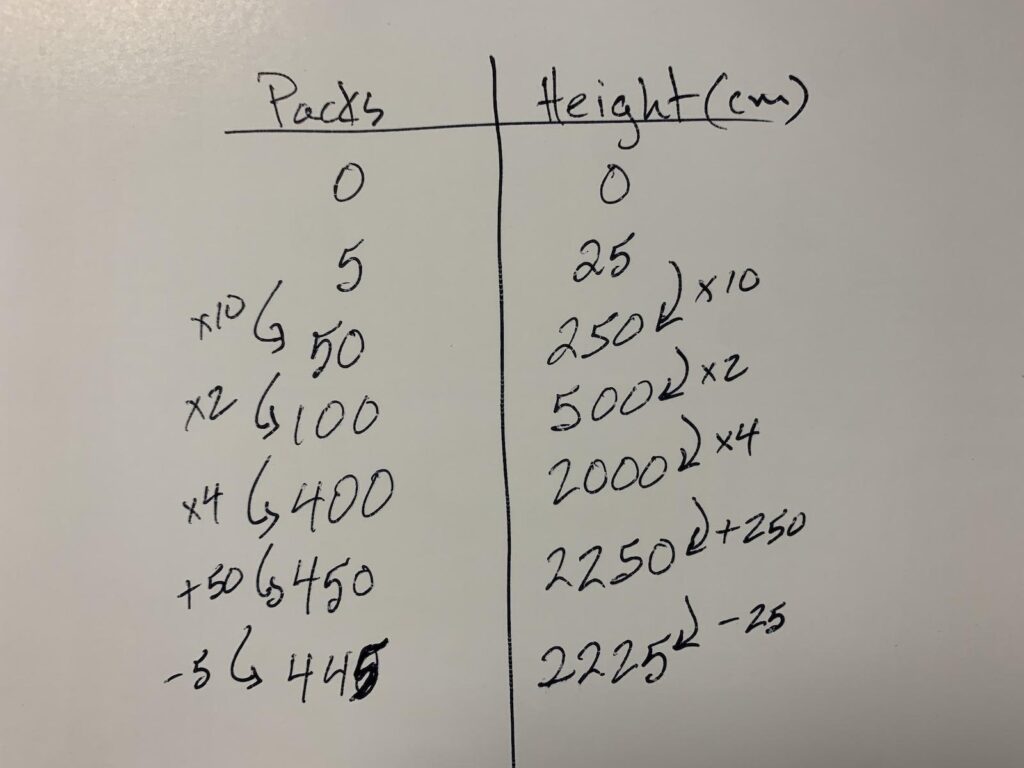 Packs Height (cm)
0 0
5 25
x10 50 250 x10
x2 100 500 x2
x4 400 2000 x4
+50 450 2250 +250
-5 445 2225 -25